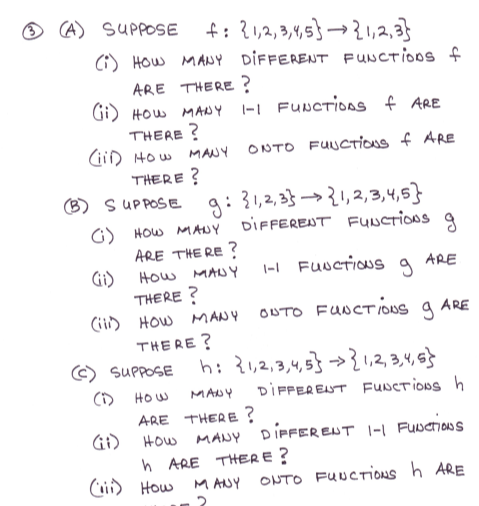 ③ (A) SUPPOSE f: {1,2,3,4,5} → {1,2,3}
(i) HOW MANY DIFFERENT FUNCTIONS f
ARE THERE?
(ii) HOW MANY 1-1 FUNCTIONS f ARE
THERE?
(iii) HOW MANY ONTO FUNCTIONS f ARE
THERE?
(B) SUPPOSE g: {1,2,3} → {1,2,3,4,5}
(i) HOW MANY DIFFERENT FUNCTIONS g
ARE THERE?
(ii) HOW MANY 1-1 FUNCTIONS g ARE
THERE?
(iii) HOW MANY ONTO FUNCTIONS g ARE
THERE?
(C) SUPPOSE h: {1,2,3,4,5} → {1,2,3,4,5}
(i) HOW MANY DIFFERENT FUNCTIONS h
ARE THERE?
(ii) HOW MANY DIFFERENT 1-1 FUNCTIONS
h ARE THERE?
(iii) HOW MANY ONTO FUNCTIONS h ARE